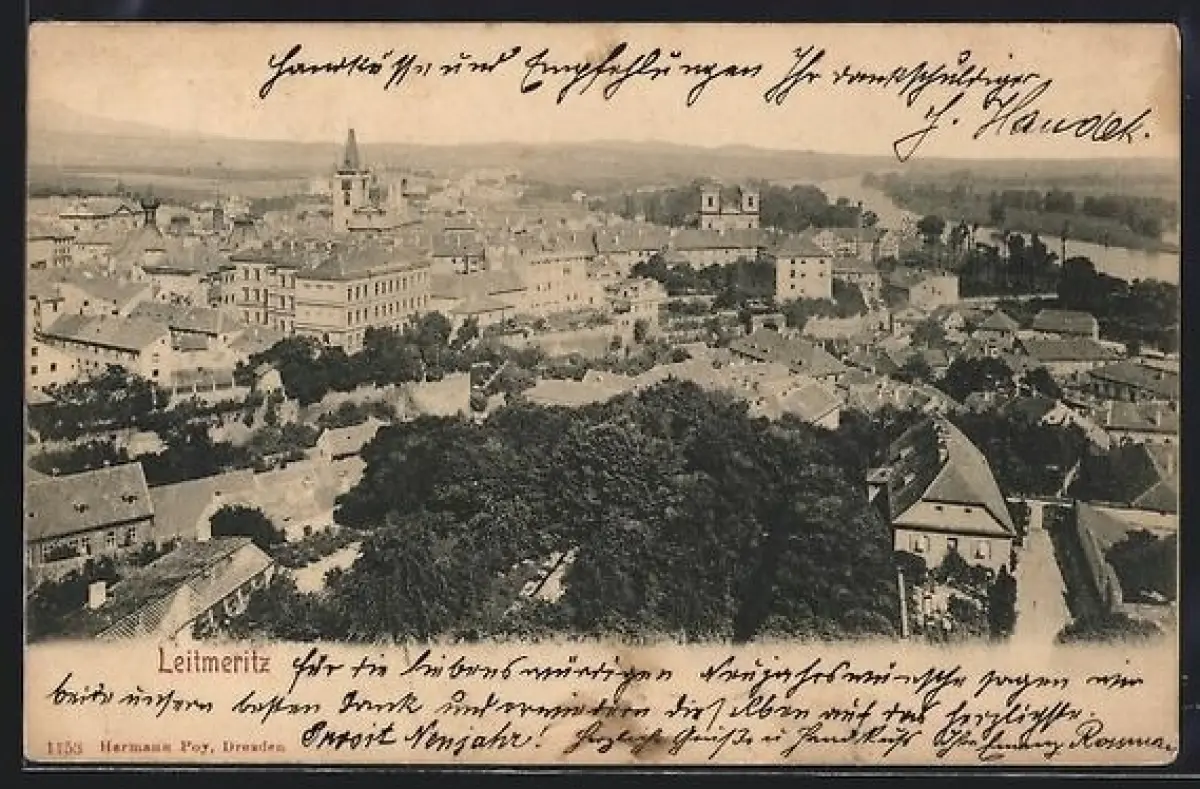 Handküsse und Empfehlungen Ihr dankschuldiger
J. Handek.
Leitmeritz
Für die liebenswürdigen Neujahrswünsche sagen wir
beide unsern besten Dank und erwiedern dieselben auf das herzlichste.
Prosit Neujahr! Herzliche Grüsse u Handkuss
1153 Hermann Poy, Dresden